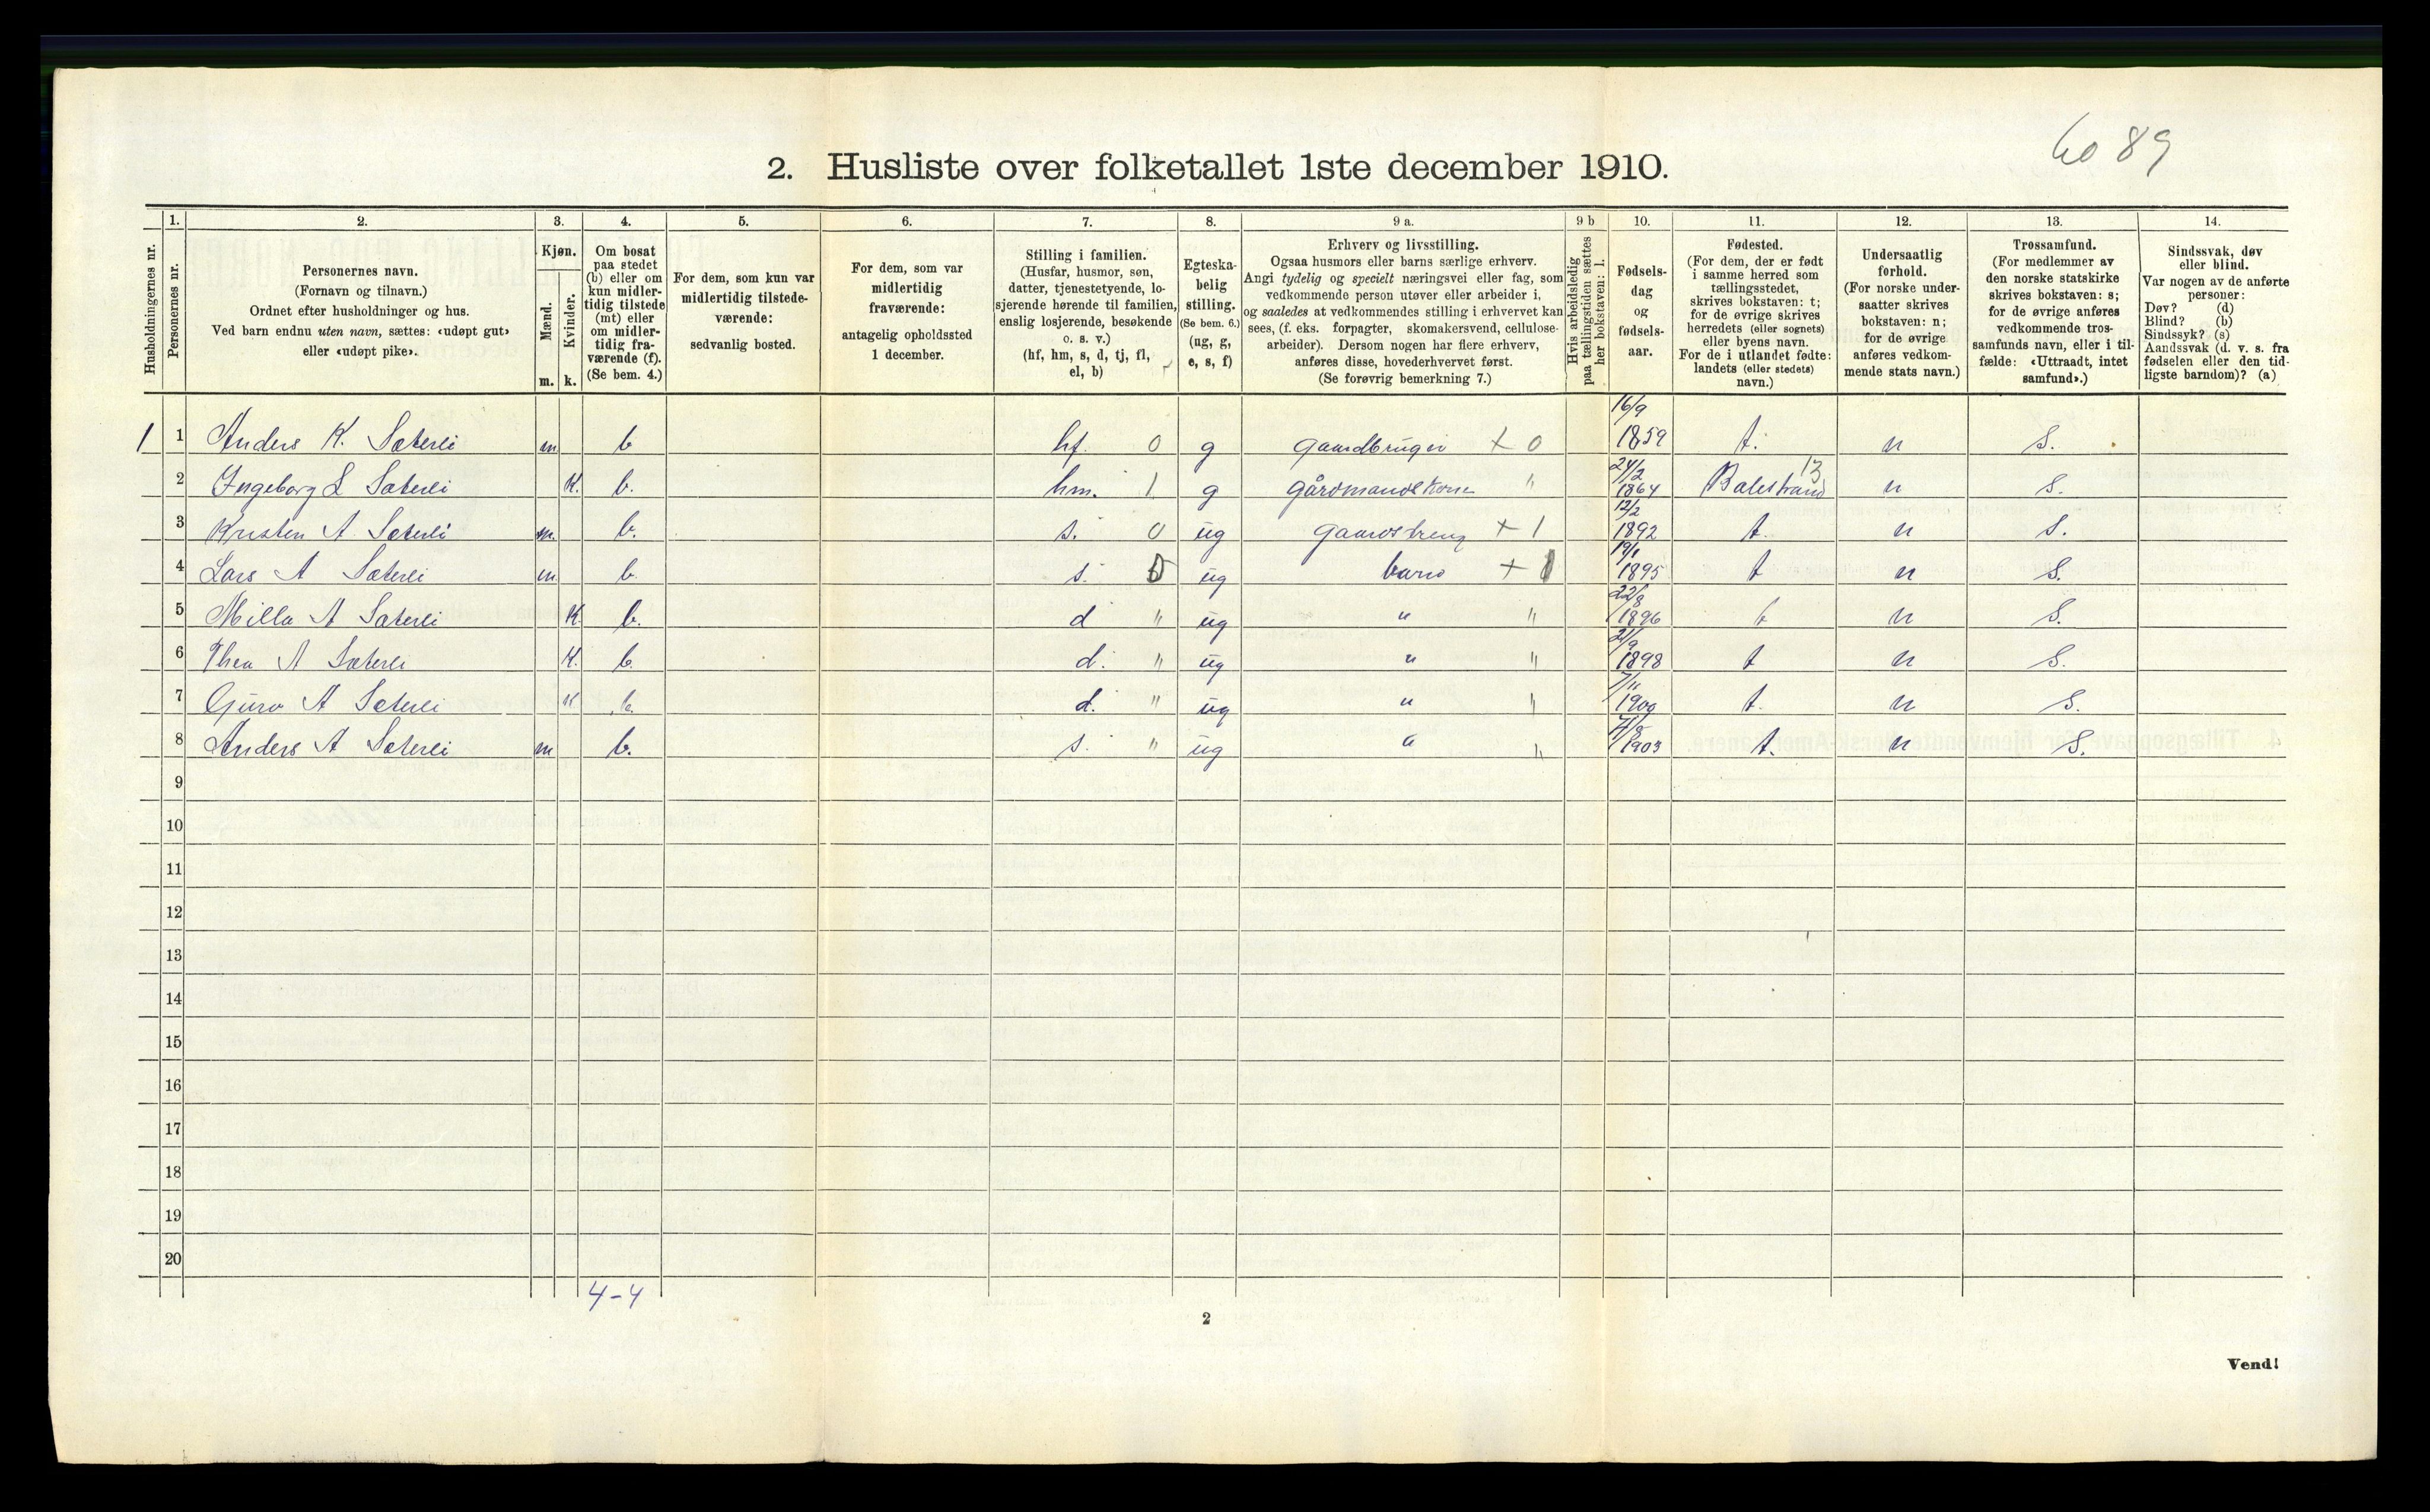 89
2. Husliste over folketallet 1ste december 1910.
Husholdningernes nr.
1. Personernes nr.
2. Personernes navn.
(Fornavn og tilnavn.)
Ordnet efter husholdninger og hus.
Ved barn endnu uten navn, sættes: «udøpt gut»
eller «udøpt pike».
3. Kjøn.
Mænd. m.
Kvinder. k.
4. Om bosat
paa stedet
(b) eller om
kun midler-
tidig tilstede
(mt) eller
om midler-
tidig fra-
værende (f).
(Se bem. 4.)
5. For dem, som kun var
midlertidig tilstede-
værende:
sedvanlig bosted.
6. For dem, som var
midlertidig
fraværende:
antagelig opholdssted
1 december.
7. Stilling i familien.
(Husfar, husmor, søn,
datter, tjenestetyende, lo-
sjerende hørende til familien,
enslig losjerende, besøkende
o. s. v.)
(hf, hm, s, d, tj, fl,
el, b)
8. Egteska-
belig
stilling.
(Se bem. 6.)
(ug, g,
e, s, f)
9 a. Erhverv og livsstilling.
Ogsaa husmors eller barns særlige erhverv.
Angi tydelig og specielt næringsvei eller fag, som
vedkommende person utøver eller arbeider i,
og saaledes at vedkommendes stilling i erhvervet kan
sees, (f. eks. forpagter, skomakersvend, cellulose-
arbeider). Dersom nogen har flere erhverv,
anføres disse, hovederhvervet først.
(Se forøvrig bemerkning 7.)
9 b Hvis arbeidsledig
paa tællingstiden sættes
her bokstaven: l.
10. Fødsels-
dag
og
fødsels-
aar.
11. Fødested.
(For dem, der er født
i samme herred som
tællingsstedet,
skrives bokstaven: t;
for de øvrige skrives
herredets (eller sognets)
eller byens navn.
For de i utlandet fødte:
landets (eller stedets)
navn.)
12. Undersaatlig
forhold.
(For norske under-
saatter skrives
bokstaven: n;
for de øvrige
anføres vedkom-
mende stats navn.)
13. Trossamfund.
(For medlemmer av
den norske statskirke
skrives bokstaven: s;
for de øvrige anføres
vedkommende tros-
samfunds navn, eller i til-
fælde: «Uttraadt, intet
samfund».)
14. Sindssvak, døv
eller blind.
Var nogen av de anførte
personer:
Døv? (d)
Blind? (b)
Sindssyk? (s)
Aandssvak (d. v. s. fra
fødselen eller den tid-
ligste barndom)? (a)
1 1 Anders K. Sæterli m b hf. 0 g gaardbruger + 0 16/9 1859 t. n S.
2 Ingeborg L Sæterli K. b. hm. 1 g gårdmandskone " 24/2 1864 Balestrand 13 n S.
3 Kristen A. Sæterli m. b. s. 0 ug gaardsdreng + 1 12/2 1892 t. n S.
4 Lars A Sæterli m b. s. ug barn + 19/1 1895 t n S.
5 Milla A Sæterli K b. d " ug " " 22/8 1896 t n S.
6 Thea A Sæterli K. b. d. " ug " " 21/9 1898 t n S.
7 Guro A Sæterli K b. d. " ug " " 7/11 1900 t. n S.
8 Anders A Sæterli m b. s. " ug " " 1903 t. n S.
9
10
11
12
13
14
15
16
17
18
19
20
4-4
2
Vend!